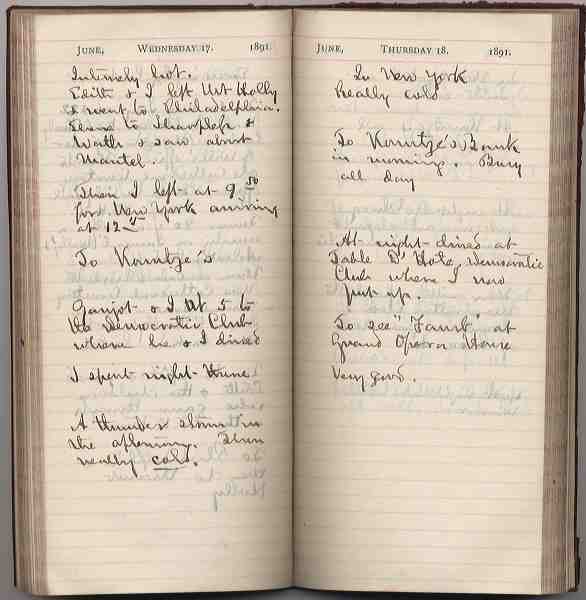 JUNE, WEDNESDAY 17. 1891.
Intensely hot.
Edith & I left Mt Holly
& went to Philadelphia.
to &
& saw about
Mantel.
Then I left at 9 50
for New York arriving
at 12
To Kountze's
& I at 5 to
the Democratic Club
where he & I dined
I spent night there.
A thunder storm in
the afternoon. Then
really cold.
JUNE, THURSDAY 18. 1891.
In New York
Really cold
To Kountze's Bank
in morning. Busy
all day
At night dined at
Table D' Hote, Democratic
Club where I now
put up.
To see "Faust" at
Grand Opera House
Very good.